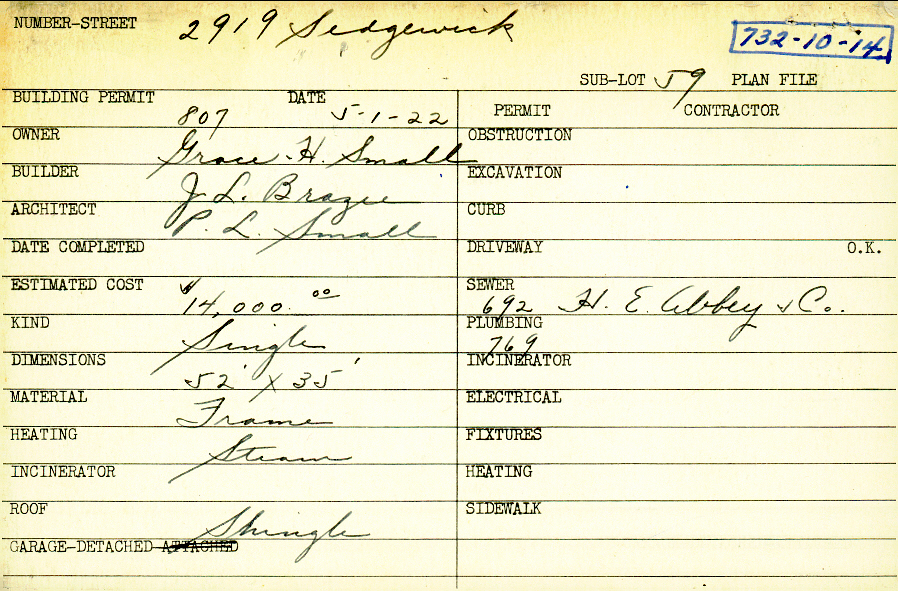 NUMBER-STREET 2919 Sedgewick
732-10-14
SUB-LOT 59 PLAN FILE
BUILDING PERMIT 807 DATE 5-1-22
PERMIT CONTRACTOR
OWNER Grace H. Small
OBSTRUCTION
BUILDER J. L. Brazee
EXCAVATION
ARCHITECT P. L. Small
CURB
DATE COMPLETED
DRIVEWAY O.K.
ESTIMATED COST $14,000.00
SEWER 692 H. E. Abbey & Co.
KIND Single
PLUMBING 769
DIMENSIONS 52' X 35'
INCINERATOR
MATERIAL Frame
ELECTRICAL
HEATING Steam
FIXTURES
INCINERATOR
HEATING
ROOF Shingle
SIDEWALK
GARAGE-DETACHED ATTACHED